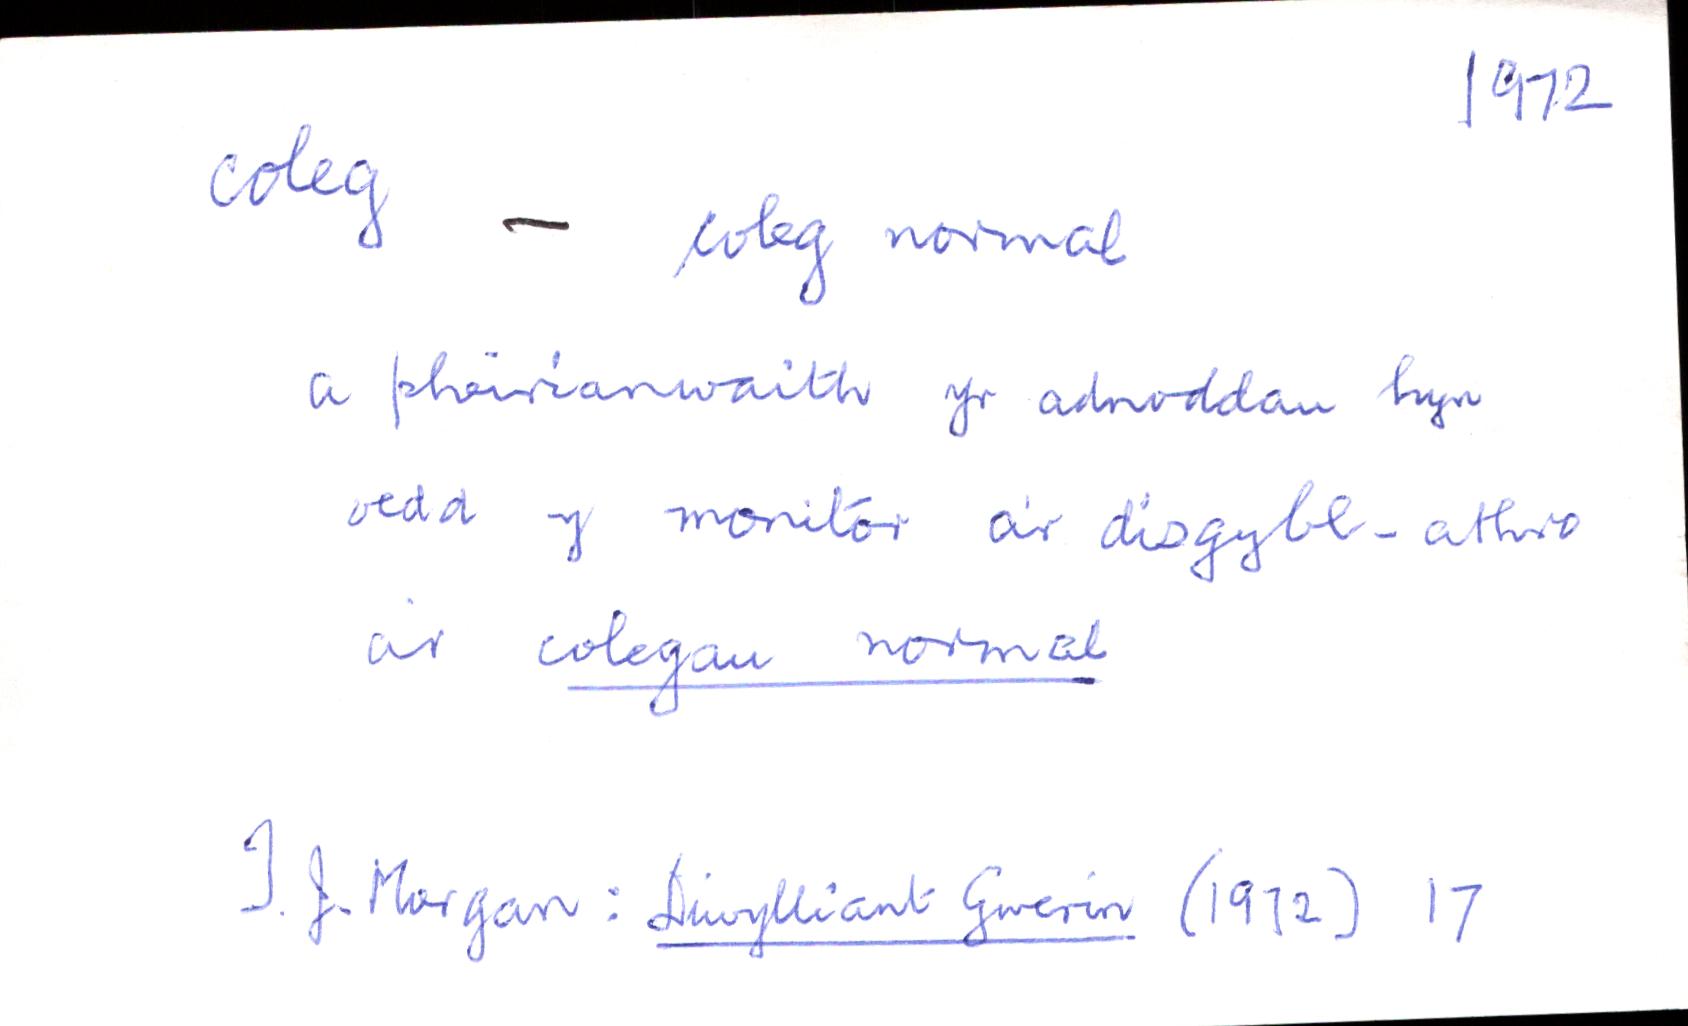 1972
coleg – coleg normal
a pheirianwaith yr adnoddau hyn
oedd y monitor a'r disgybl-athro
a'r colegau normal
T. J. Morgan: Diwylliant Gwerin (1972) 17